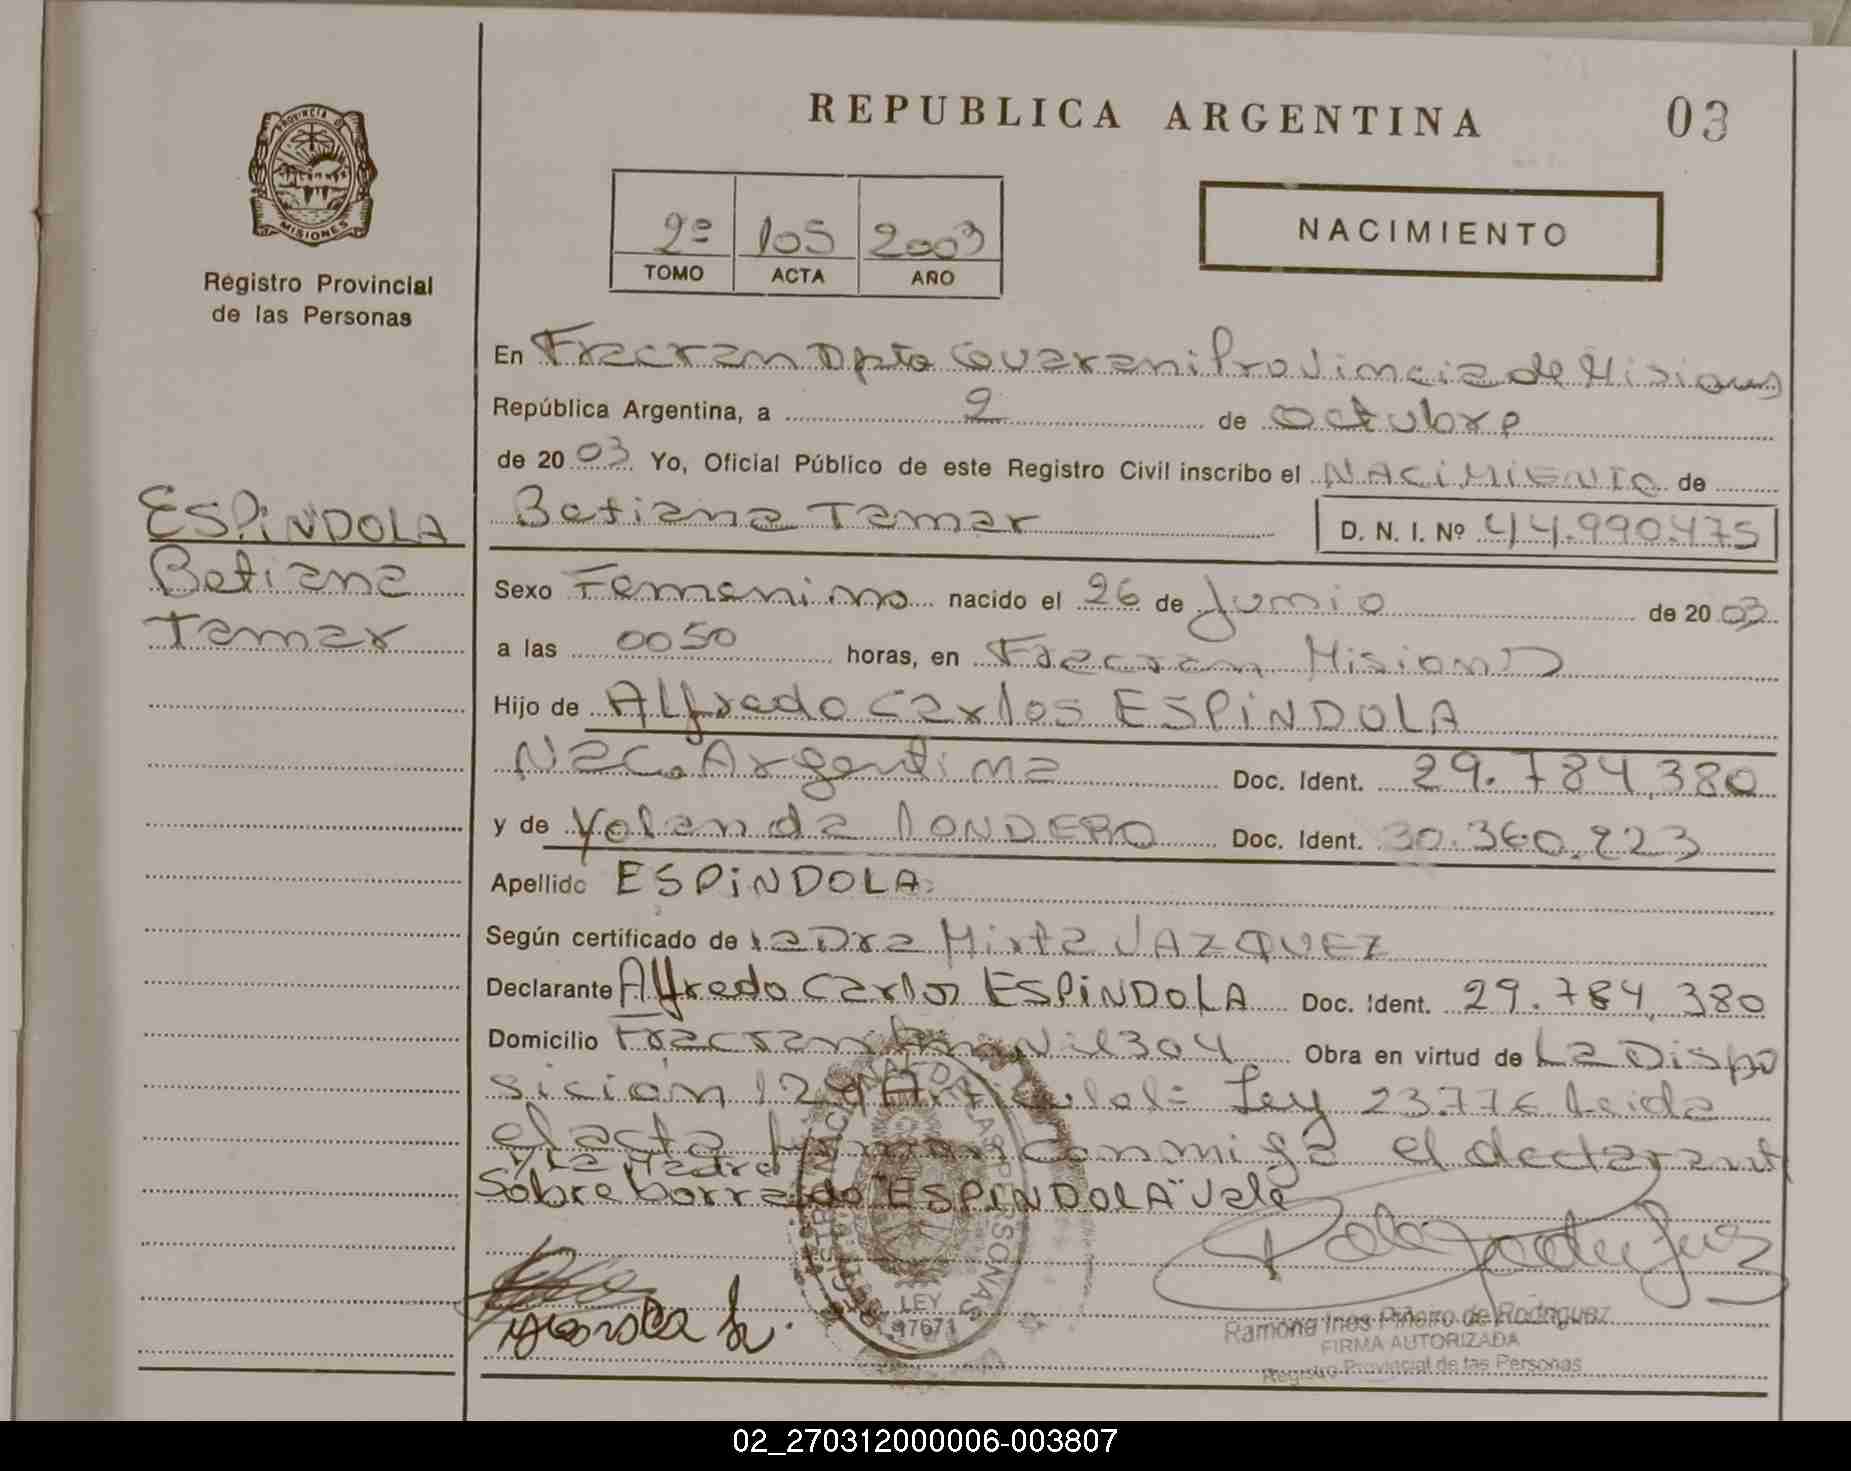 REPUBLICA ARGENTINA
03
PROVINCIA D
MISIONES
Registro Provincial
de las Personas
2º 105 2003
TOMO ACTA AÑO
NACIMIENTO
En Fracran Dpto Guarani Provincia de Misiones
República Argentina, a 2 de octubre
de 2003 Yo, Oficial Público de este Registro Civil inscribo el NACIMIENTO de
Betiana Tamar D. N. I. Nº 44.990.475
ESPíNDOLA
Betiana
Tamar
Sexo Femenino nacido el 26 de Junio de 2003
a las 0050 horas, en Fracran Misiones
Hijo de Alfredo Carlos ESPíNDOLA
Nac. Argentina Doc. Ident. 29.784.380
y de Yolanda LONDERO Doc. Ident. 30.360.223
Apellido ESPiNDOLA
Según certificado de la Dra Mirta VAZQUEZ
Declarante Alfredo Carlos ESPiNDOLA Doc. Ident. 29.784.380
Domicilio Fracran 304 Obra en virtud de La Dispo
sición Ley 23.776 Leida
el acta firman conmigo el declarant
y La Madre
Sobre borrado "ESPINDOLA" Vale
LEY
17671
Ramona Ines Piñeiro de Rodriguez
FIRMA AUTORIZADA
Registro Provincial de las Personas
02_270312000006-003807